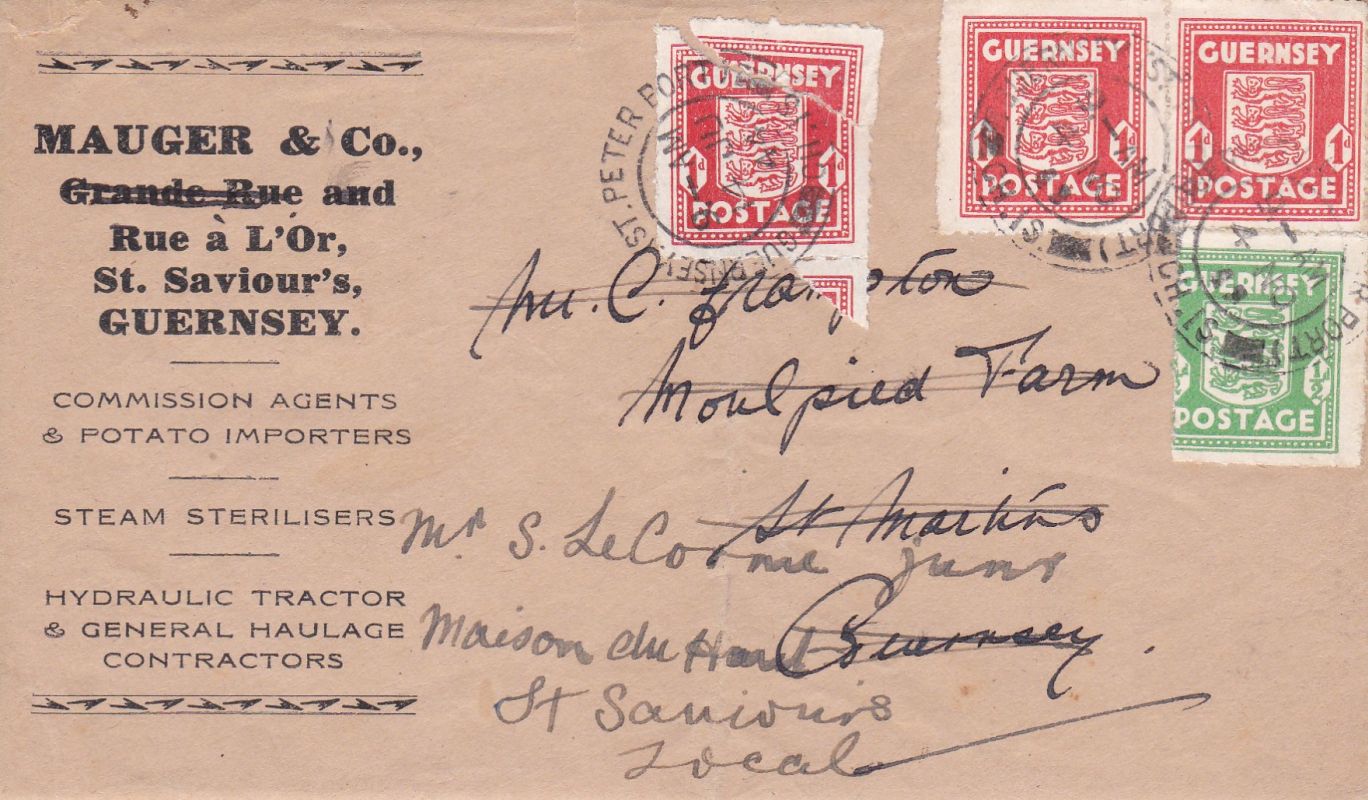 MAUGER & Co.,
Grande Rue and
Rue à L'Or,
St. Saviour's,
GUERNSEY.
COMMISSION AGENTS
& POTATO IMPORTERS
STEAM STERILISERS
HYDRAULIC TRACTOR
& GENERAL HAULAGE
CONTRACTORS
GUERNSEY
1d 1d
POSTAGE
ST. PETER PORT
GUERNSEY
GUERNSEY
1d 1d
POSTAGE
GUERNSEY
1d 1d
POSTAGE
GUERNSEY
½ ½
POSTAGE
Mr. C. Frampton
Moulpied Farm
St Martins
Guernsey.
Mr S. LeCorme junr
Maison du Haut
St Saviours
Local